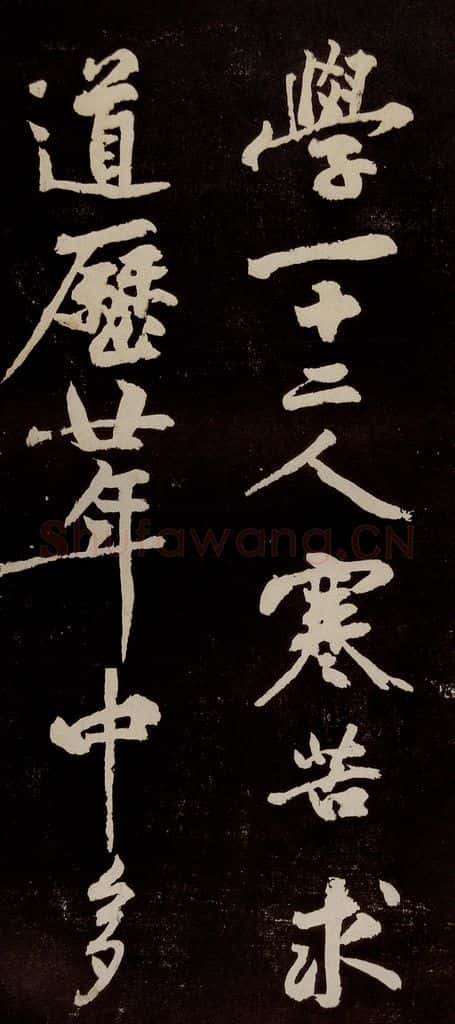 學一十二人寒苦求
道歷廿年中多
Shufawang.CN